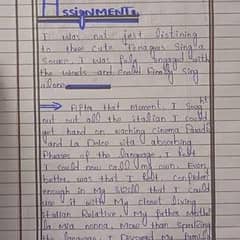 ASSIGNMENT.
I was not just listining
to these cute Tenages Singla
Souer. I was fully engaged with
the words and could finally sing
along
After that Moment, I Sought
out all the italian I could
get hand on waching cinema Paradi
and La Dolce vita absorbing
Phases of the language I felt
I could now call my own. Even
better was that I felt confident
enough in My Skill that I could
use it with My closet living
italian Relative, My father mothe
la mia nonna, More than speaking
the language, I Discoverd My Family